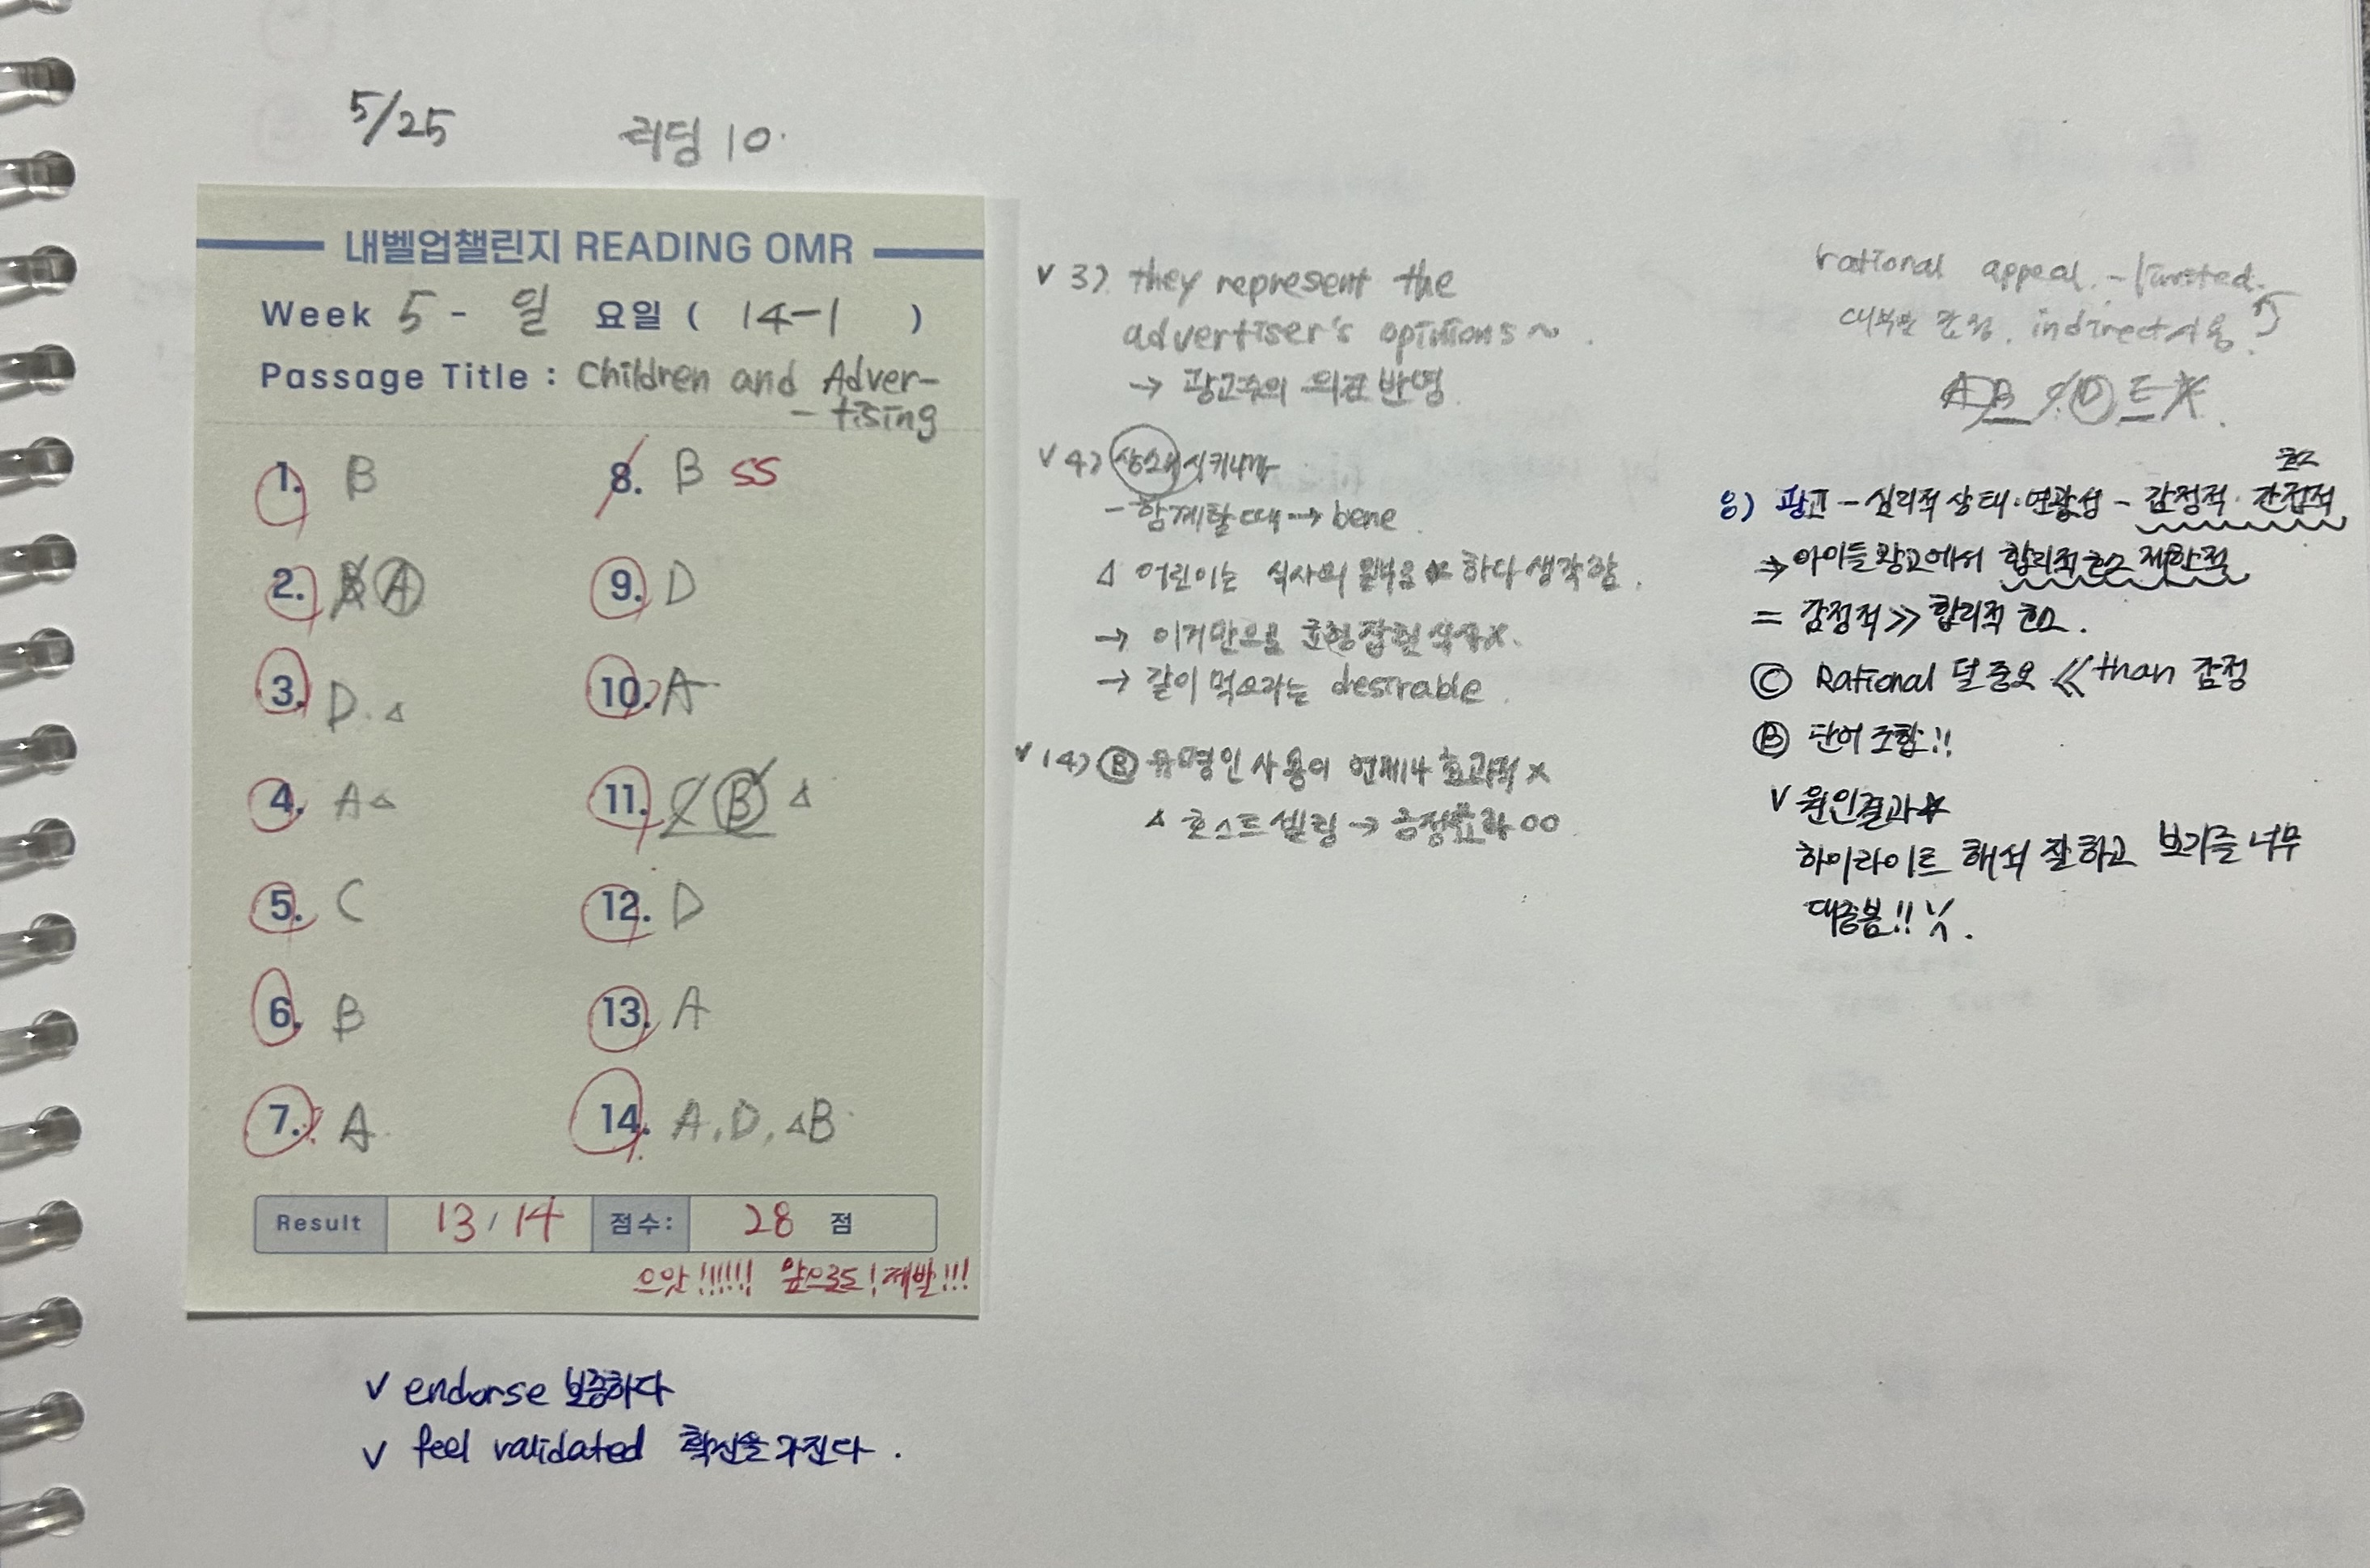 5/25 리딩 10.
내벨업챌린지 READING OMR
Week 5 - 일 요일 ( 14-1 )
Passage Title : Children and Adver-
- tising
1. B
2. B A
3. D. △
4. A △
5. C
6. B
7. A
8. B SS
9. D
10. A
11. C B △
12. D
13. A
14. A, D, △B
Result 13 / 14 점수: 28 점
으앗!!!!!! 앞으로도! 제발!!!
v endorse 보증하다
v feel validated 확신을 가진다.
v 3) they represent the
advertiser's opinions ~.
→ 광고주의 의견 반영
v 4) 상쇄시키니까
- 함께할 때 → bene
△ 어린이는 식사의 일부요 하다 생각함.
→ 이거만으로 균형잡힌 식사 x.
→ 같이 먹으라는 desirable.
v 14) Ⓑ 유명인 사용이 언제나 효과적 x
△ 호스트 셀링 → 긍정효과 oo
rational appeal. - limited.
대부분 감정. indirect 사용.
A B C D E F.
호소
8) 광고 - 심리적 상태·연관성 - 감정적·간접적
⇒ 아이들 광고에서 합리적 호소 제한적
= 감정적 ≫ 합리적 호소.
Ⓒ Rational 덜 중요 ≪ than 감정
Ⓑ 단어 조합!!
v 원인결과☆
하이라이트 해석 잘하고 보기를 너무
대충봄!!